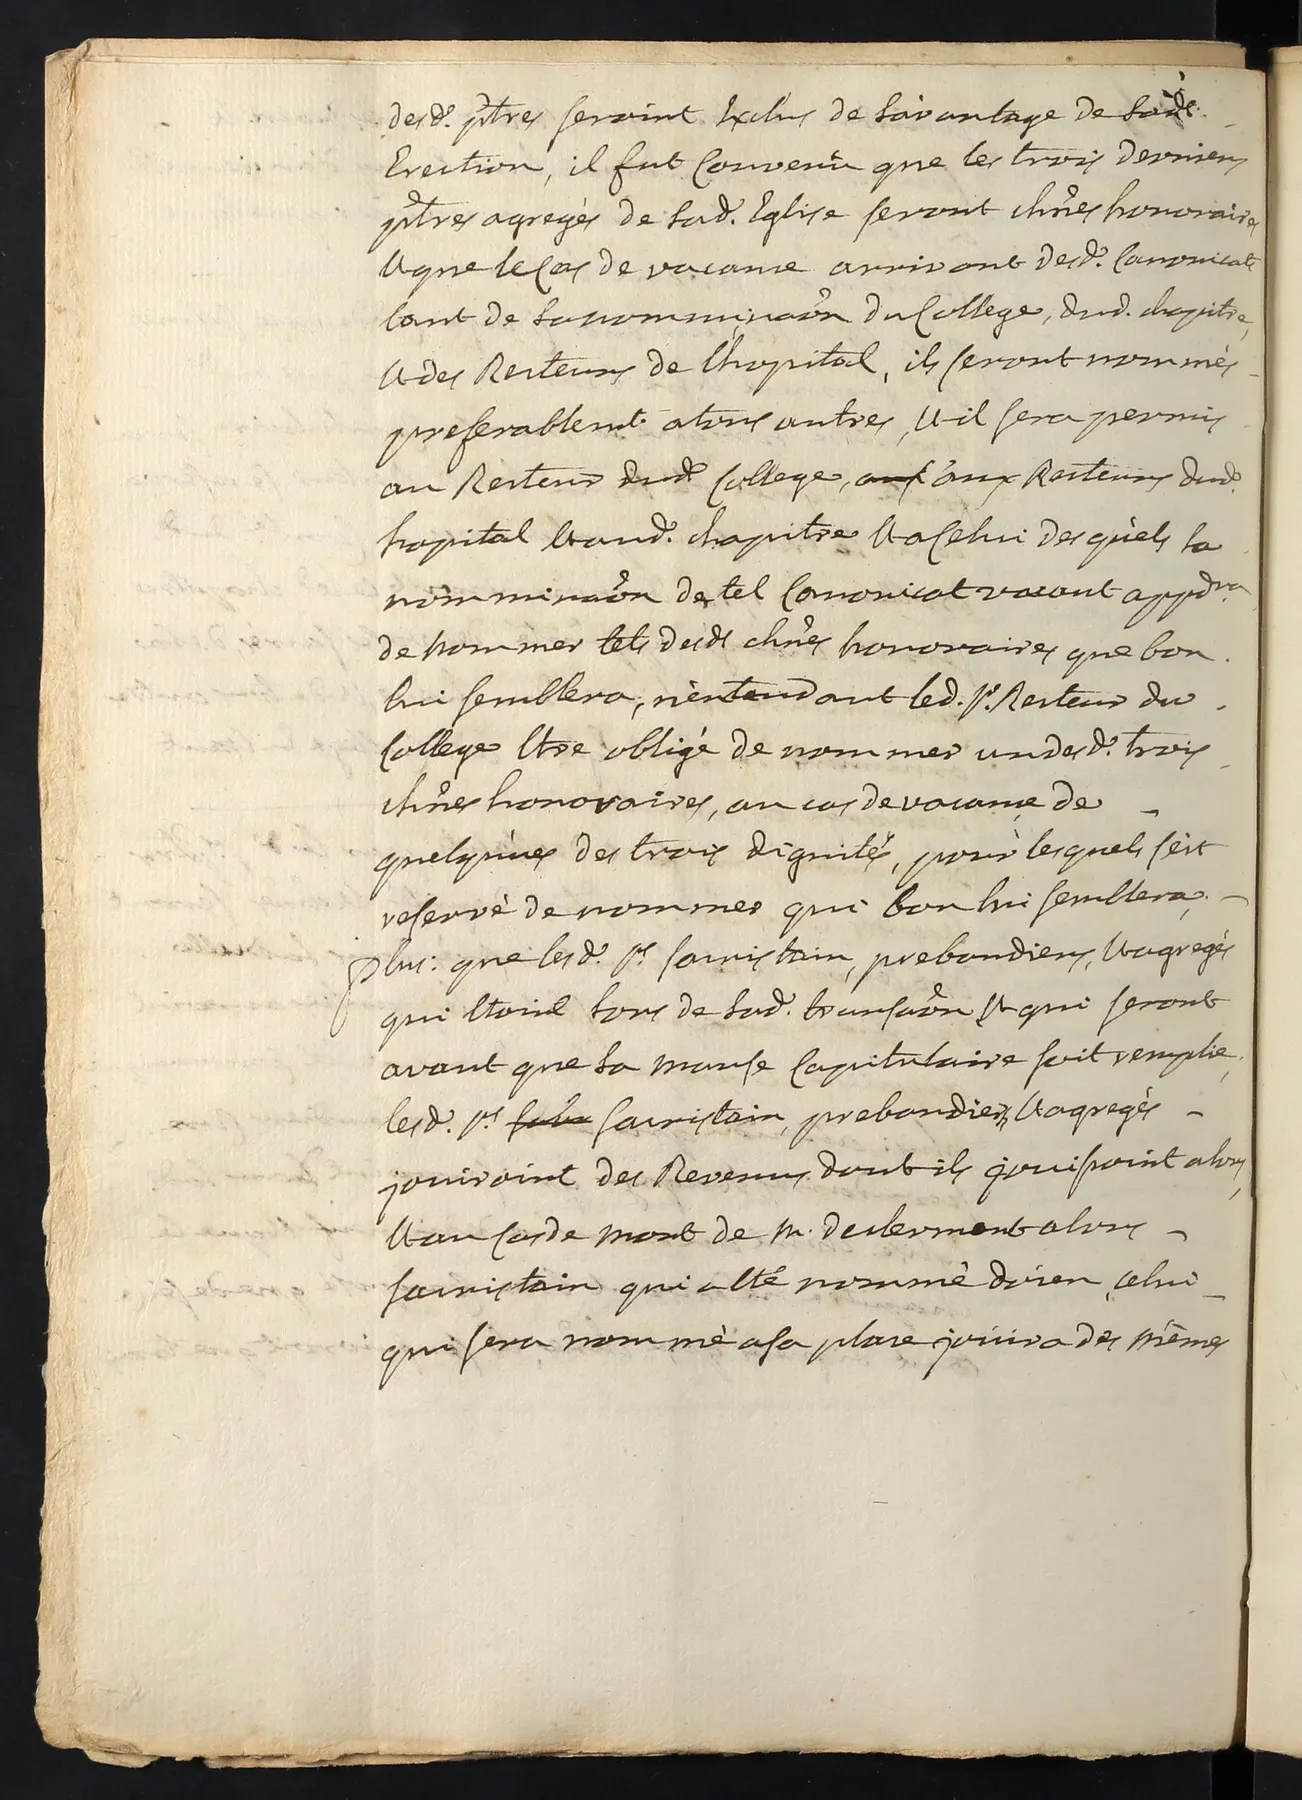 desd. ptres seroint Exclus de lavantage de lade.
Erection, il fut Convenu que les trois derniers
ptres agregés de lad. Eglise seront chnes honoraires
Et que le Cas de vacance arrivant desd. Canonicats
tant de la nomminaôn du College, dud. chapitre,
Et des Recteurs de l'hopital, ils seront nommés
preferablemt. a tous autres, Et il sera permis
au Recteur dud. College, aux Recteurs dud.
hopital Et aud. chapitre Et a Celui desquels la
nomminaôn de tel Canonicat vacant appdra.
de nommer tels desd. chnes honoraires que bon
lui semblera, n'entendant led. sr. Recteur du
College Etre obligé de nommer un desd. trois
chnes honoraires, au cas de vacance de
quelqu'unes des trois dignités, pour lesquels s'est
reservé de nommer qui bon lui semblera.
plus: que lesd. srs sacristain, prebandiers, Et agregés
qui Etoint lors de lad. transaôn Et qui seront
avant que la manse Capitulaire soit remplie,
lesd. srs sacristain, prebandiers, Et agregés
jouiroint des Revenus dont ils jouissoint alors,
Et au Cas de mort de m. declermont alors
sacristain qui a Eté nommé doïen, celui
qui sera nommé a sa place jouira des mêmes